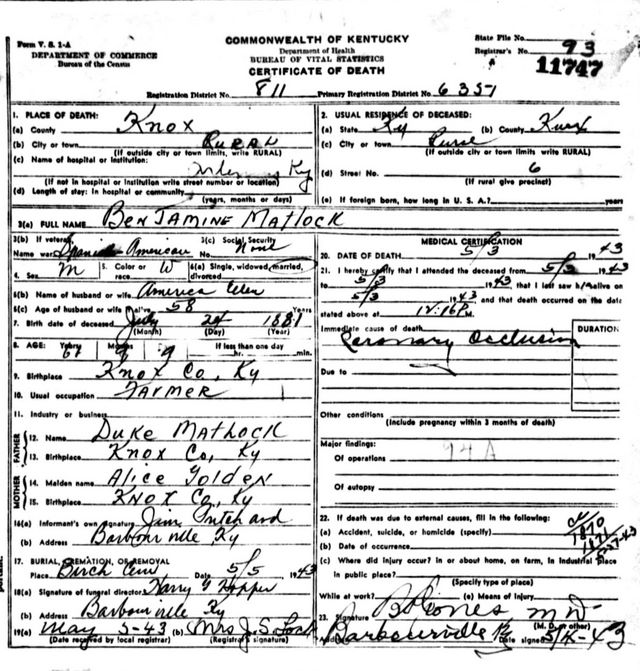 Form V. S. 1-A
DEPARTMENT OF COMMERCE
Bureau of the Census
COMMONWEALTH OF KENTUCKY
Department of Health
BUREAU OF VITAL STATISTICS
CERTIFICATE OF DEATH
State File No.
Registrar's No. 93
11747
Registration District No. 811 Primary Registration District No. 6351
1. PLACE OF DEATH:
(a) County Knox
(b) City or town RURAL
(If outside city or town limits, write RURAL)
(c) Name of hospital or institution:
Ky
(If not in hospital or institution write street number or location)
(d) Length of stay: In hospital or community
(years, months or days)
2. USUAL RESIDENCE OF DECEASED:
(a) State Ky (b) County Knox
(c) City or town
(If outside city or town limits, write RURAL)
(d) Street No. 6
(If rural give precinct)
(e) If foreign born, how long in U. S. A.? years
3(a) FULL NAME BENJAMINE MATLOCK
3(b) If veteran, Name war Spanish American
3(c) Social Security No. None
4. Sex M
5. Color or race W
6(a) Single, widowed, married, divorced
6(b) Name of husband or wife America Ellen
6(c) Age of husband or wife if alive 58 Years
7. Birth date of deceased July 24 1881
(Month) (Day) (Year)
8. AGE: Years Months 9 Days 9 If less than one day
hr. min.
9. Birthplace Knox Co, Ky
10. Usual occupation FARMER
11. Industry or business
FATHER
12. Name Duke Matlock
13. Birthplace Knox Co, Ky
MOTHER
14. Maiden name Alice Golden
15. Birthplace KNOX Co, Ky
16(a) Informant's own signature Jim
(b) Address Barbourville Ky
17. BURIAL, CREMATION, OR REMOVAL
Place Birch Cem Date 5/5 1943
18(a) Signature of funeral director Harry G Hopper
(b) Address Barbourville Ky
19(a) May 5-43 (b) Mrs J. S.
(Date received by local registrar) (Registrar's signature)
MEDICAL CERTIFICATION
20. DATE OF DEATH 5/3 1943
21. I hereby certify that I attended the deceased from 5/3 1943
to 5/3 1943 that I last saw h alive on
5/3 1943 and that death occurred on the date
stated above at 12:16 P M.
Immediate cause of death
DURATION
Coronary Occlusion
Due to
Other conditions
(Include pregnancy within 3 months of death)
Major findings:
Of operations 94A
Of autopsy
22. If death was due to external causes, fill in the following:
(a) Accident, suicide, or homicide (specify)
1870
(b) Date of occurrence 1871
(c) Where did injury occur? in or about home, on farm, in Industrial Place
in public place?
(Specify type of place)
While at work? (e) Means of Injury.
23. Signature M.D.
(M. D. or other)
Address Barbourville Ky Date signed